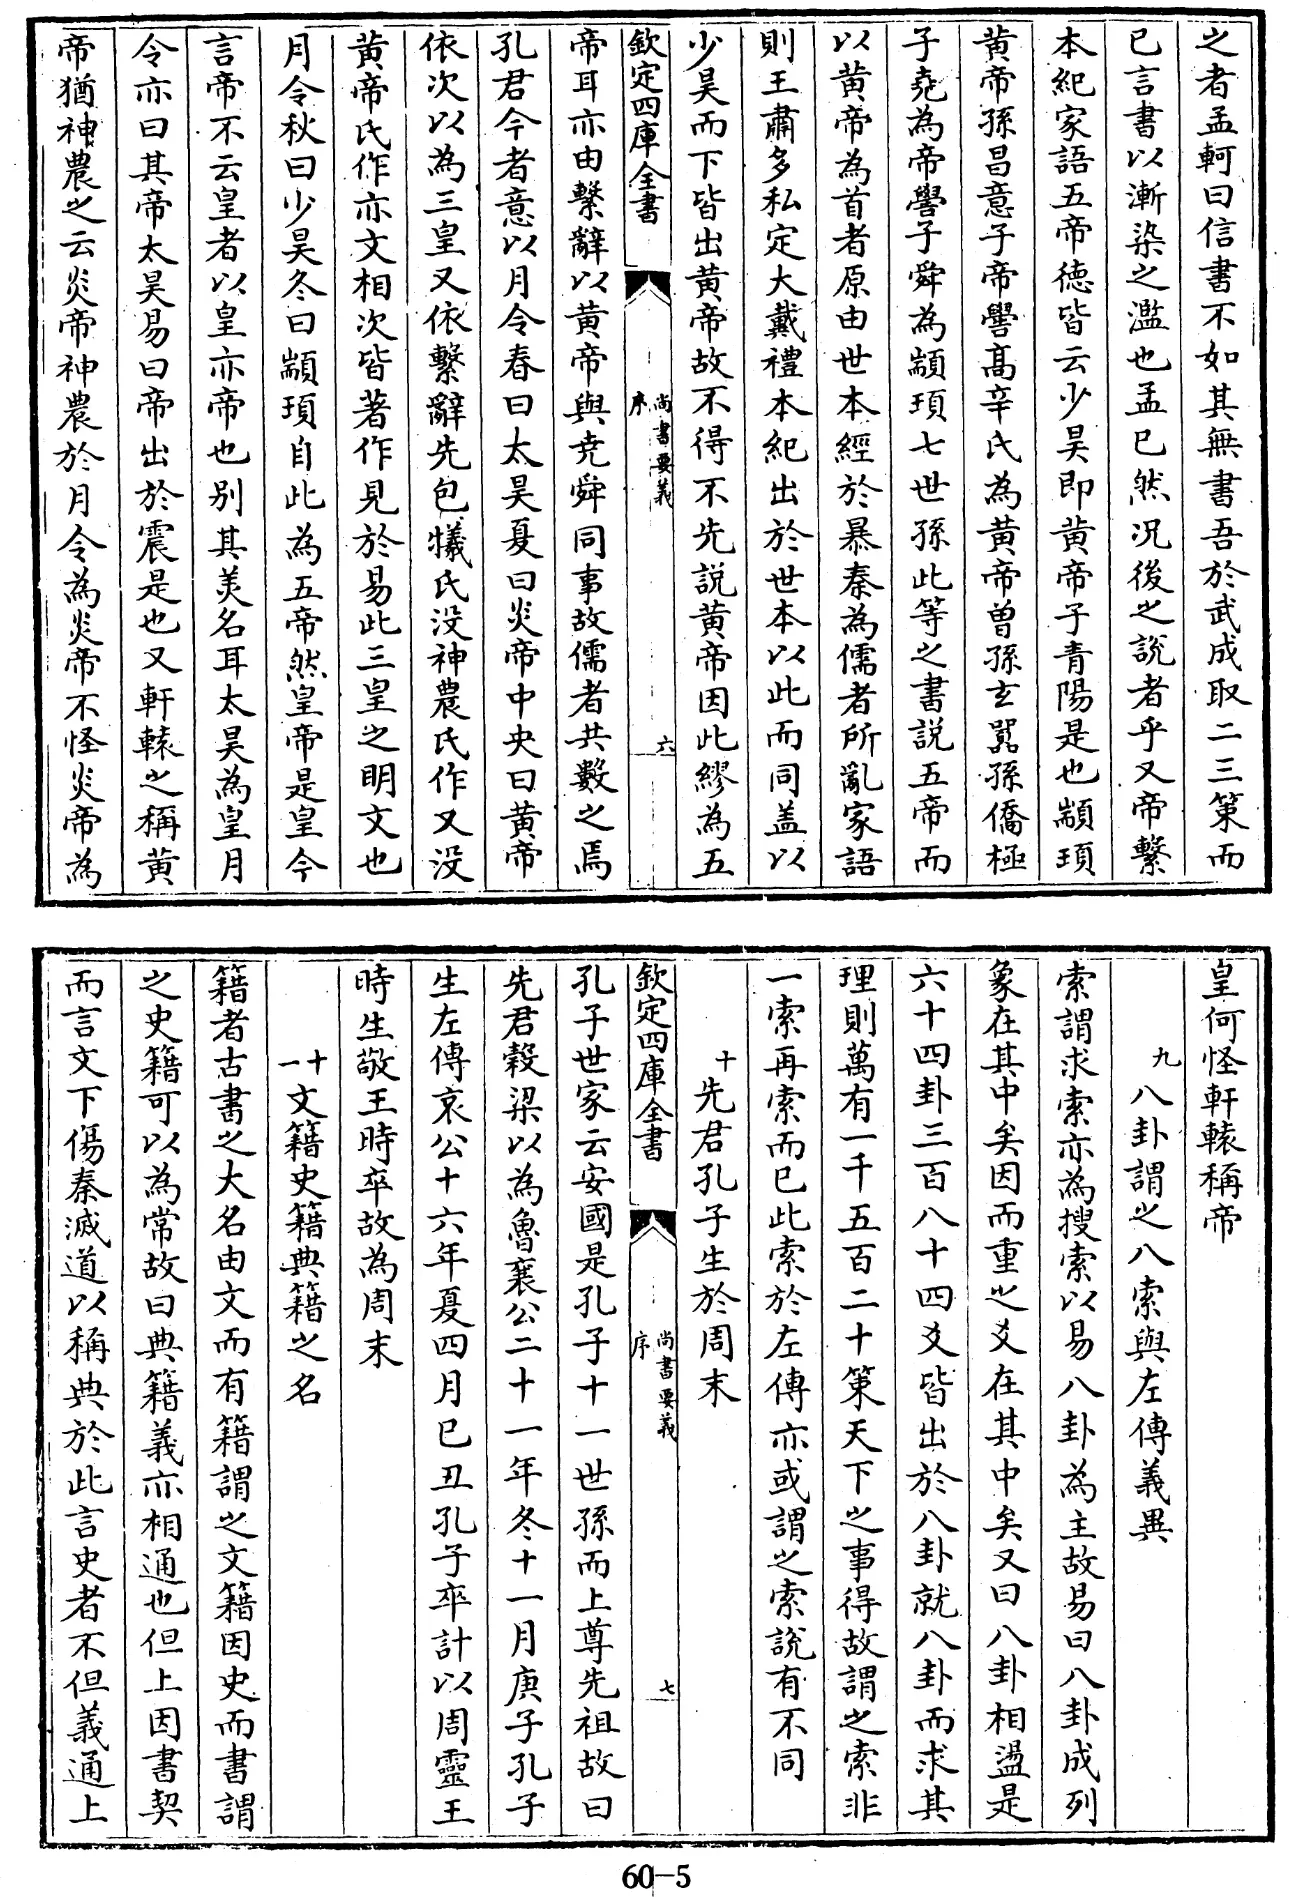 之者孟軻曰信書不如其無書吾於武成取二三策而
已言書以漸染之濫也孟已然况後之説者乎又帝繫
本紀家語五帝德皆云少昊即黄帝子青陽是也顓頊
黄帝孫昌意子帝嚳髙辛氏為黄帝曾孫玄囂孫僑極
子堯為帝嚳子舜為顓頊七世孫此等之書説五帝而
以黄帝為首者原由世本經於暴秦為儒者所亂家語
則王肅多私定大戴禮本紀出於世本以此而同盖以
少昊而下皆出黄帝故不得不先説黄帝因此繆為五
欽定四庫全書
尚書要義
序
六
帝耳亦由繫辭以黄帝與堯舜同事故儒者共數之焉
孔君今者意以月令春曰太昊夏曰炎帝中央曰黄帝
依次以為三皇又依繫辭先包犧氏没神農氏作又没
黄帝氏作亦文相次皆著作見於易此三皇之明文也
月令秋曰少昊冬曰顓頊自此為五帝然皇帝是皇今
言帝不云皇者以皇亦帝也别其美名耳太昊為皇月
令亦曰其帝太昊易曰帝出於震是也又軒轅之稱黄
帝猶神農之云炎帝神農於月令為炎帝不怪炎帝為
皇何怪軒轅稱帝
九八卦謂之八索與左傳義異
索謂求索亦為搜索以易八卦為主故易曰八卦成列
象在其中矣因而重之爻在其中矣又曰八卦相盪是
六十四卦三百八十四爻皆出於八卦就八卦而求其
理則萬有一千五百二十策天下之事得故謂之索非
一索再索而已此索於左傳亦或謂之索説有不同
十先君孔子生於周末
欽定四庫全書
尚書要義
序
七
孔子世家云安國是孔子十一世孫而上尊先祖故曰
先君穀梁以為魯襄公二十一年冬十一月庚子孔子
生左傳哀公十六年夏四月已丑孔子卒計以周靈王
時生敬王時卒故為周末
十一文籍史籍典籍之名
籍者古書之大名由文而有籍謂之文籍因史而書謂
之史籍可以為常故曰典籍義亦相通也但上因書契
而言文下傷秦滅道以稱典於此言史者不但義通上
60-5